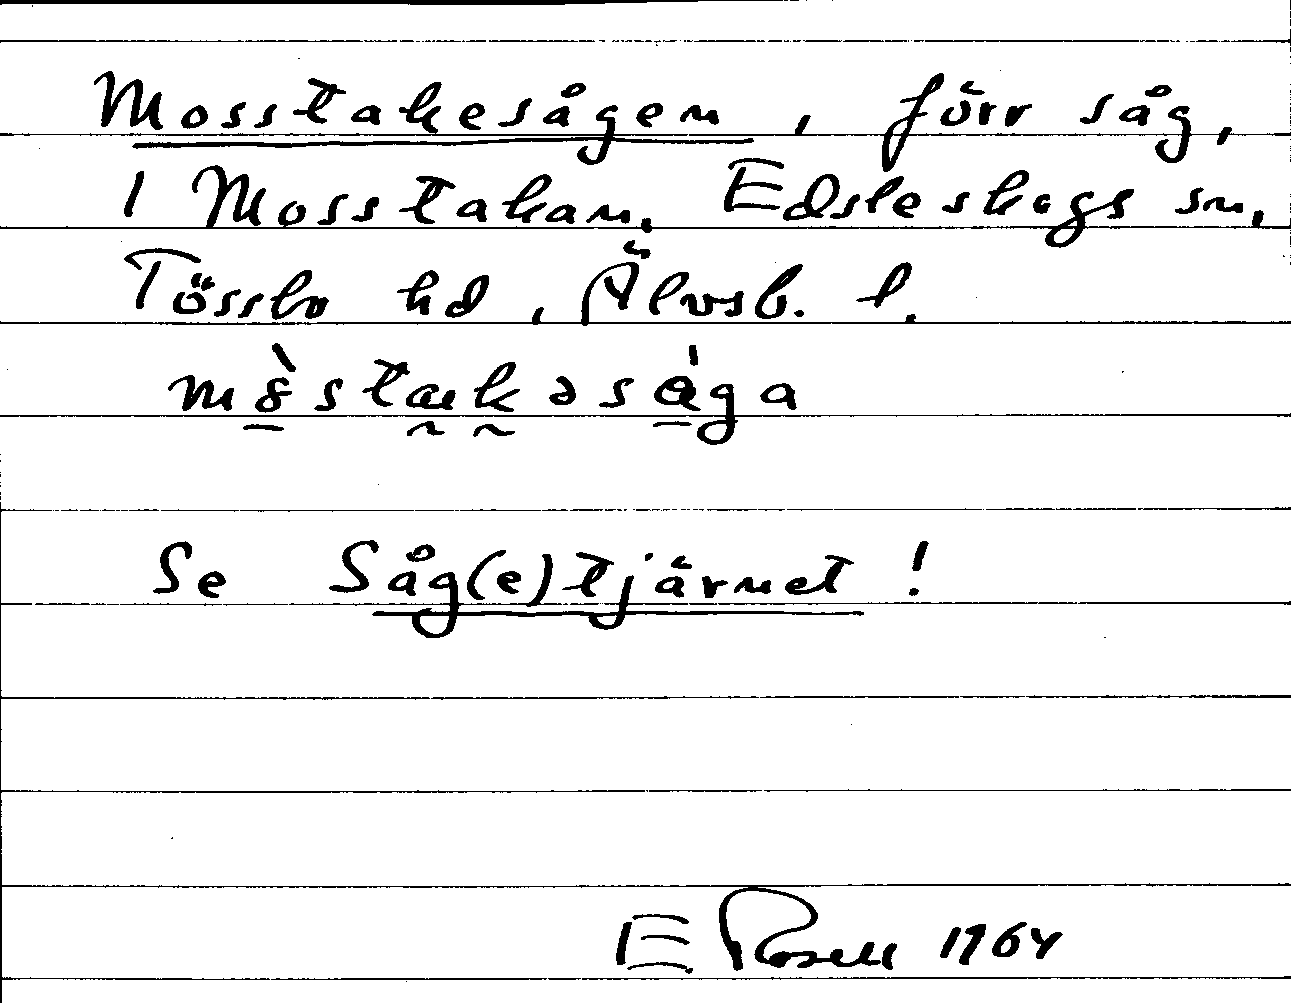 Mosstakesågen, förr såg,
i Mosstakan, Edsleskogs sn,
Tössbo hd, Älvsb. l.
Se Såg(e)tjärnet!
E Rosell 1964